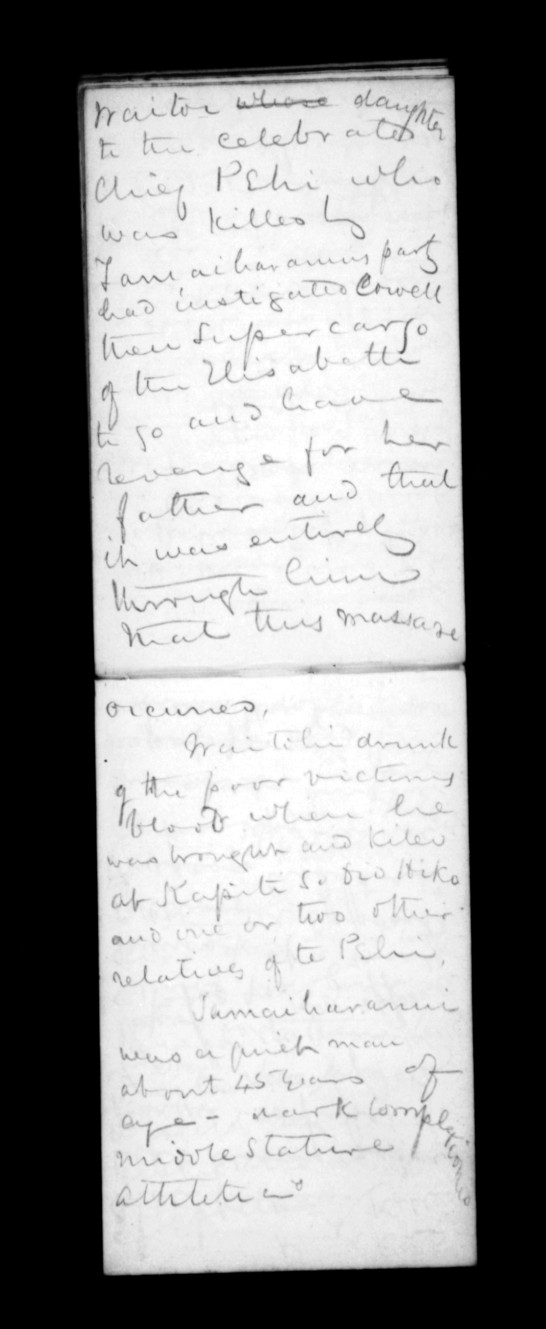 Waitoi whose daughter
to the celebrated
Chief P Ehi who
was killed by
Tamaiharanui's party
had instigated Cowell
then Supercargo
of the Elisabeth
to go and have
revenge for her
father and that
it was entirely
through him
that this massacre
occurred.
Waitohi drunk
of the poor victims
blood when he
was brought and killed
at Kapiti so did Hiko
and one or two other
relatives of te Pehi.
Tamaiharanui
was a quiet man
about 45 years of
age - dark complexioned
middle Stature
athletic